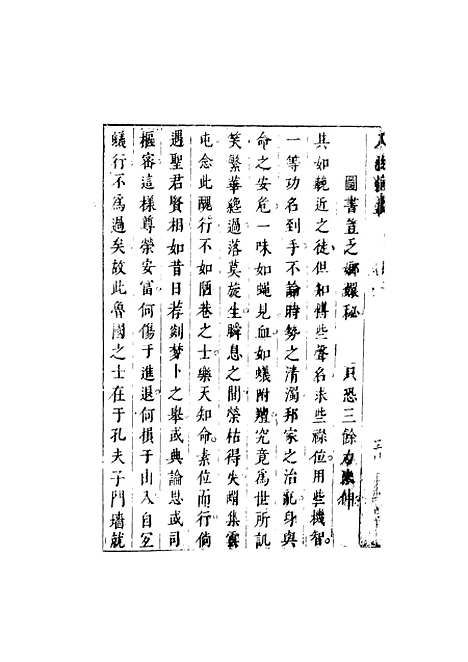 圖書豈乏嫏嬛秘 只恐三餘
其如輓近之徒但知博些聲名求些祿位用些機智
一等功名到手不論時勢之清濁邦家之治亂身與
命之安危一味如蝇見血如蟻附羶究竟爲世所訕
笑繁華纔過落莫旋生瞬息之間榮枯得失鬧集雲
屯念此醜行不如陋巷之士樂天知命素位而行倘
遇聖君賢相如昔日若剡梦卜之舉或典論思或司
樞密這樣尊榮安富何傷于進退何損于出入自
蟻行不爲過矣故此魯國之士在于孔夫子門墻就